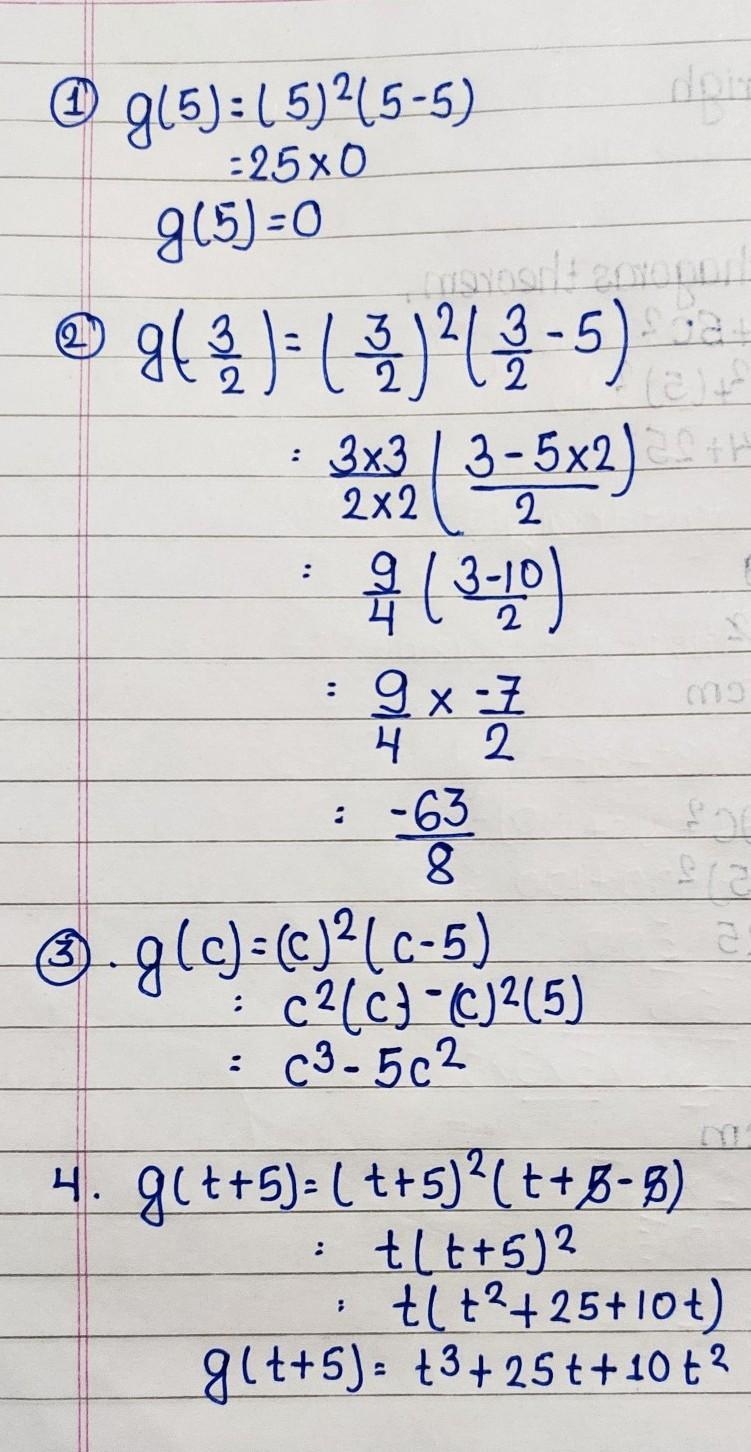 ① g(5)=(5)²(5-5)
=25×0
g(5)=0
② g(3/2)=(3/2)²(3/2-5)
: 3×3/2×2 (3-5×2/2)
: 9/4 (3-10/2)
: 9/4 × -7/2
: -63/8
③. g(c)=(c)²(c-5)
: c²(c)-(c)²(5)
= c³-5c²
4. g(t+5)=(t+5)²(t+5-5)
: t(t+5)²
: t(t²+25+10t)
g(t+5)= t³+25t+10t²